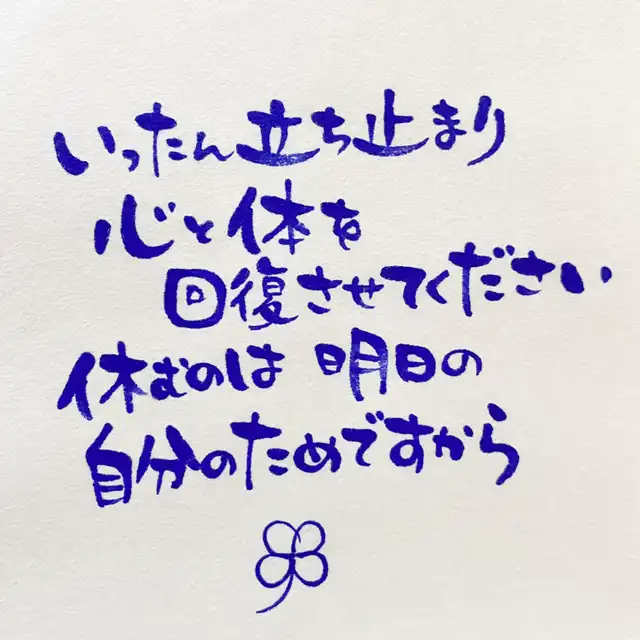 いったん立ち止まり
心と体を
回復させてください
休むのは 明日の
自分のためですから